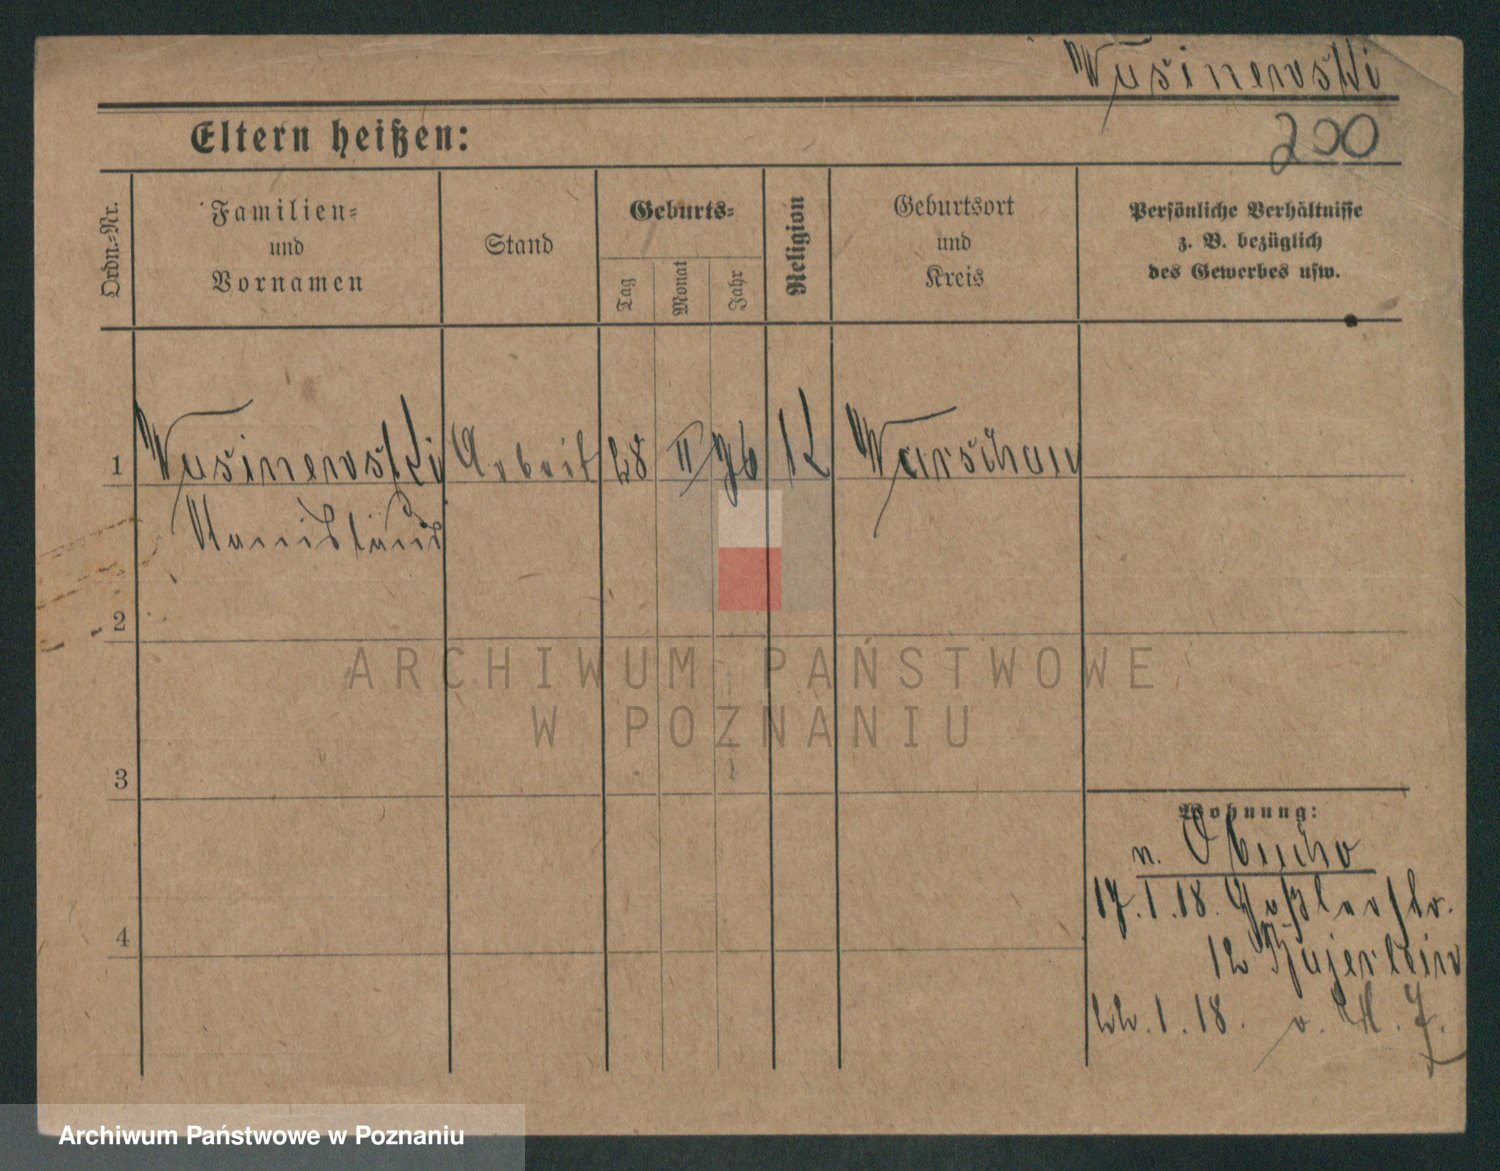 Wusinerowski
200
Eltern heißen:
Ordn.-Nr.
Familien-
und
Vornamen
Stand
Geburts-
Tag
Monat
Jahr
Religion
Geburtsort
und
Kreis
Persönliche Verhältnisse
z. B. bezüglich
des Gewerbes usw.
1
Arbeit
28
II
96
K
Warschau
2
3
4
Wohnung:
n.
17. 1. 18.
12
22. 1. 18. v.
ARCHIWUM PAŃSTWOWE
W POZNANIU
Archiwum Państwowe w Poznaniu